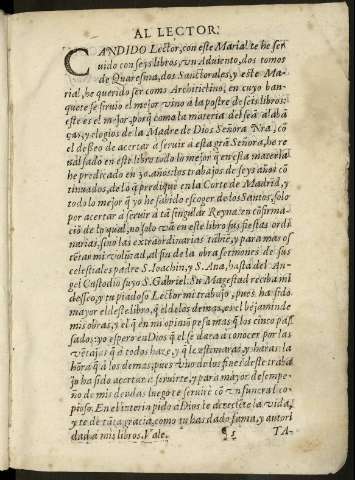 AL LECTOR.
CANDIDO Lector, con este Marial te he ser
uido con seys libros, vn Aduiento, dos tomos
de Quaresma, dos Sanctorales, y este Ma-
rial, he querido ser como Architiclino, en cuyo ban-
quete se siruio el mejor vino a la postre de seis libros:
este es el mejor, porq̃ como la materia del seã alabã
ças, y elogios de la Madre de Dios Señora Nr̃a, cõ
el desseo de acertar â seruir â esta grã Señora, he re
ualsado en este libro todo lo mejor q̃ en esta materia
he predicado en 30. años: los trabajos de seys años cõ
tinuados, de lo q̃ prediquê en la Corte de Madrid, y
todo lo mejor q̃ yo he sabido escoger de los Santos, solo
por acertar â seruir a tã singular Reyna: en cõfirma
ciõ de lo qual, no solo vã en este libro sus fiestas ordi
narias, sino las extraordinarias tãbiẽ, y para mas os
tẽtar mi volũtad, al fin de la obra sermones de sus
celestiales padre S. Ioachin, y S. Ana, hasta del An-
gel Custodio suyo S. Gabriel. Su Magestad reciba mi
desseo, y tu piadoso Lector mi trabajo, pues ha sido
mayor el deste libro, q̃ el de los demas, es el bejaminde
mis obras, y el q̃ en mi opiniõ pesa mas q̃ los cinco pas
sados: yo espero en Dios q̃ el se darâ â conocer por las
vẽtajas q̃ â todos haze, y q̃ le estimaras, y haras la
hõra q̃ â los demas; pues vno de los fines deste traba
jo ha sido acertar â seruirte, y para mayor desempe-
ño de mis deudas luego te seruirê cõ vn funeral co-
pioso. En el interin pido a Dios, te acreciẽte la vida,
y te dê tãta gracia, como tu has dado fama, y autori
dad a mis libros. Vale.
TA-